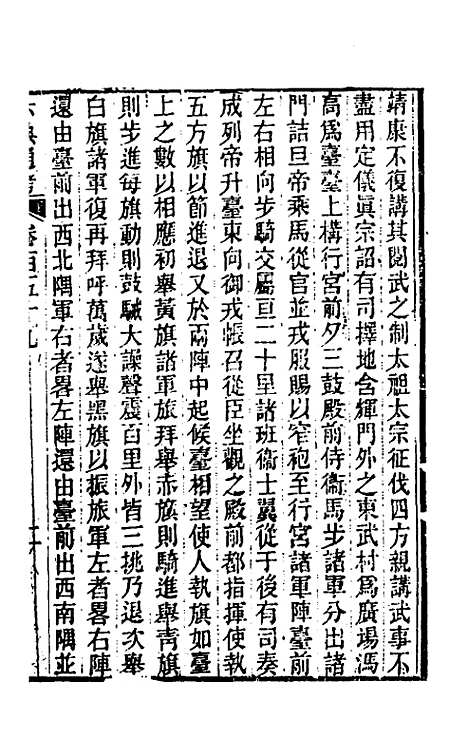 靖康不復講其閱武之制太祖太宗征伐四方親講武事不
盡用定儀眞宗詔有司擇地含輝門外之東武村爲廣場馮
高爲臺臺上構行宮前夕三鼓殿前侍衞馬步諸軍分出諸
門詰旦帝乘馬從官並戎服賜以窄袍至行宮諸軍陣臺前
左右相向步騎交屬亘二十里諸班衞士翼從于後有司奏
成列帝升臺東向御戎帳召從臣坐觀之殿前都指揮使執
五方旗以節進退又於兩陣中起候臺相望使人執旗如臺
上之數以相應初舉黃旗諸軍旅拜舉赤旗則騎進舉靑旗
則步進每旗動則鼓駴大譟聲震百里外皆三挑乃退次舉
白旗諸軍復再拜呼萬歲遂舉黑旗以振旅軍左者畧右陣
還由臺前出西北隅軍右者畧左陣還由臺前出西南隅並
六典通考 卷百五十九